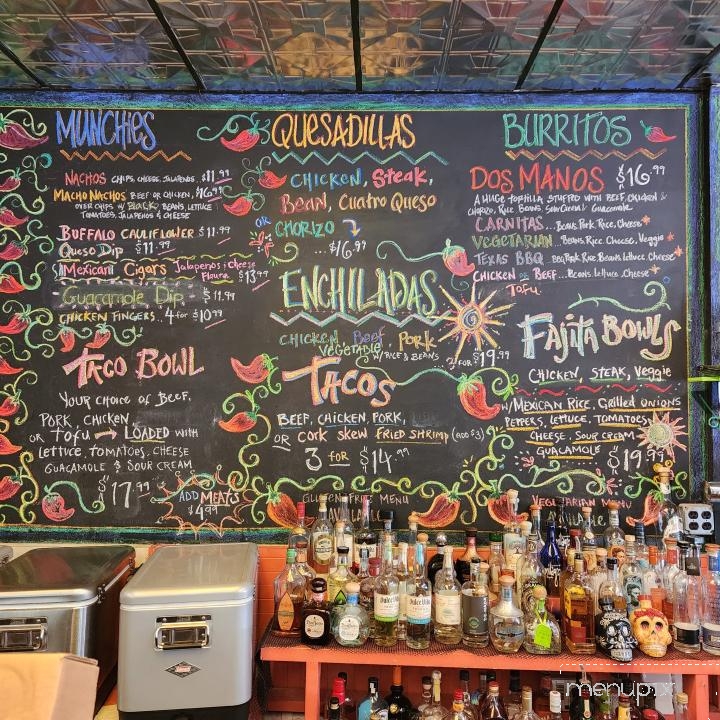 MUNCHIES
NACHOS CHIPS, CHEESE, JALAPENOS $11.99
MACHO NACHOS BEEF OR CHICKEN, $16.99
OVER CHIPS W/ BLACK BEANS LETTUCE
TOMATOES, JALAPENOS & CHEESE
BUFFALO CAULIFLOWER $11.99
Queso Dip $11.99
Mexican Cigars Jalapenos & Cheese
Flour $13.99
Guacamole Dip $11.99
CHICKEN FINGERS.. 4 for $10.99
TACO BOWL
YOUR CHOICE OF BEEF,
PORK, CHICKEN,
OR Tofu LOADED WITH
Lettuce, tomatoes, CHEESE
GUACAMOLE & SOUR CREAM
$17.99
ADD MEATS
$4.99
QUESADILLAS
CHICKEN, Steak,
Bean, Cuatro Queso
OR CHORIZO
...$16.99
ENCHILADAS
CHICKEN Beef Pork
VEGETABLE
W/RICE & BEANS 2 FOR $19.99
TACOS
BEEF, CHICKEN, PORK,
OR cork skew FRIED SHRIMP (ADD $3)
3 FOR $14.99
GLUTEN FREE MENU
AVAILABLE
BURRITOS
DOS MANOS $16.99
A HUGE TORTILLA STUFFED WITH BEEF, CHICKEN &
CHORIZO, Rice Beans, Sour Cream & Guacamole
CARNITAS...Beans, Pork, Rice, Cheese
VEGETARIAN..Beans, Rice, Cheese, Veggie
TEXAS BBQ BBQ Pork, Rice, Beans, Cheese
CHICKEN OR BEEF...Beans, Lettuce, Cheese
Tofu
FAJITA BOWLS
CHICKEN, STEAK, Veggie
W/MEXICAN RICE, GRILLED ONIONS
PEPPERS, LETTUCE, TOMATOES
CHEESE, SOUR CREAM
GUACAMOLE $19.99
VEGETARIAN MENU
AVAILABLE
Dulce Vida
Dulce Vida
menupix